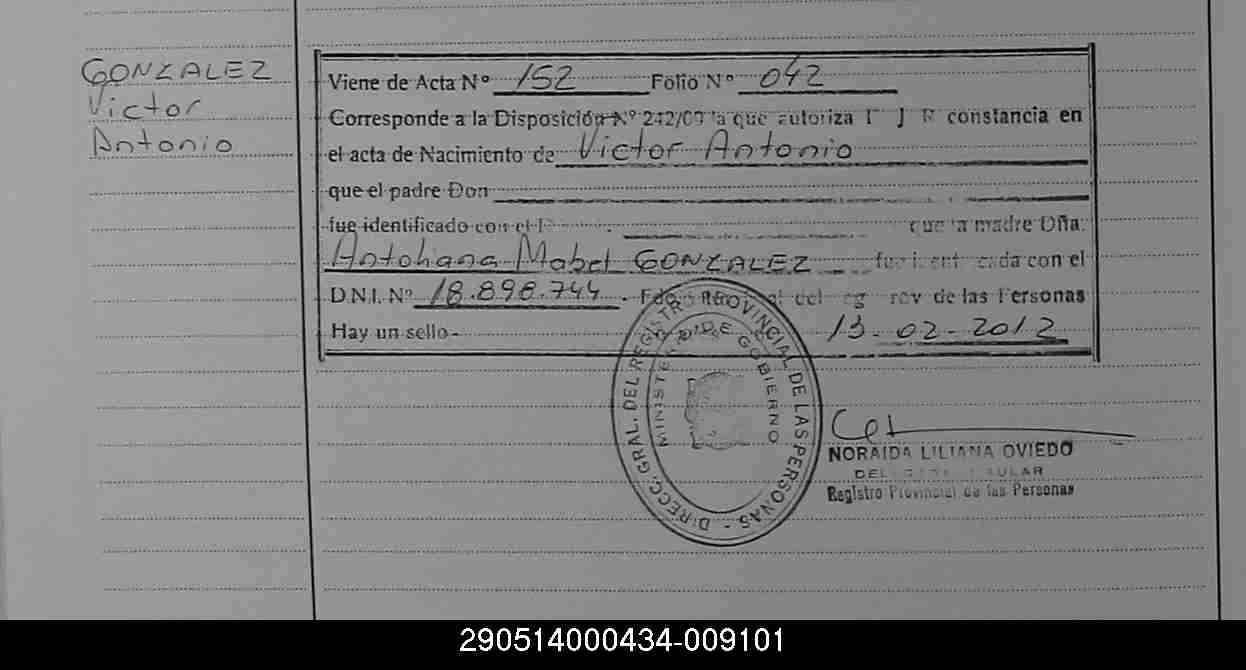 GONZALEZ
Victor
Antonio
Viene de Acta Nº 152 Folio Nº 042
Corresponde a la Disposición Nº 242/09 la que autoriza constancia en
el acta de Nacimiento de Victor Antonio
que el padre Don
fue identificado con el que la madre Dña.
Mabel GONZALEZ con el
D.N.I. Nº 18.898.744 . de las Personas
Hay un sello- 13-02-2012
DIRECC. GRAL. DEL REGISTRO PROVINCIAL DE LAS PERSONAS -
MINISTERIO DE GOBIERNO
NORAIDA LILIANA OVIEDO
Registro Provincial de las Personas
290514000434-009101